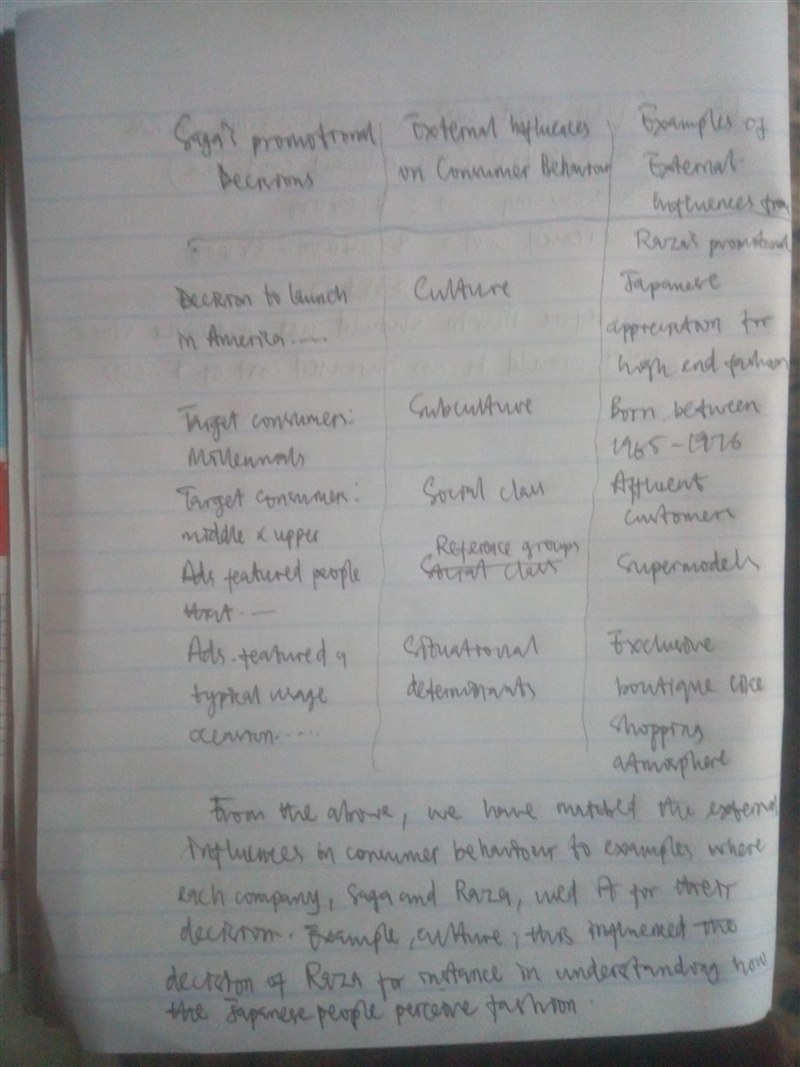 Saga's promotional Decisions | External Influences on Consumer Behaviour | Examples of External Influences from Raza's promotional
Decision to launch in America..... | Culture | Japanese appreciation for high end fashion
Target consumers: Millennials | Subculture | Born between 1965-1976
Target consumer: middle & upper | Social class | Affluent customers
Ads featured people that.... | Reference groups ~~Social class~~ | Supermodels
Ads featured a typical usage occasion..... | Situational determinants | Exclusive boutique like shopping atmosphere
From the above, we have matched the external
influences in consumer behaviour to examples where
each company, Saga and Raza, used it for their
decision. Example, culture; this influenced the
decision of Raza for instance in understanding how
the Japanese people perceive fashion.